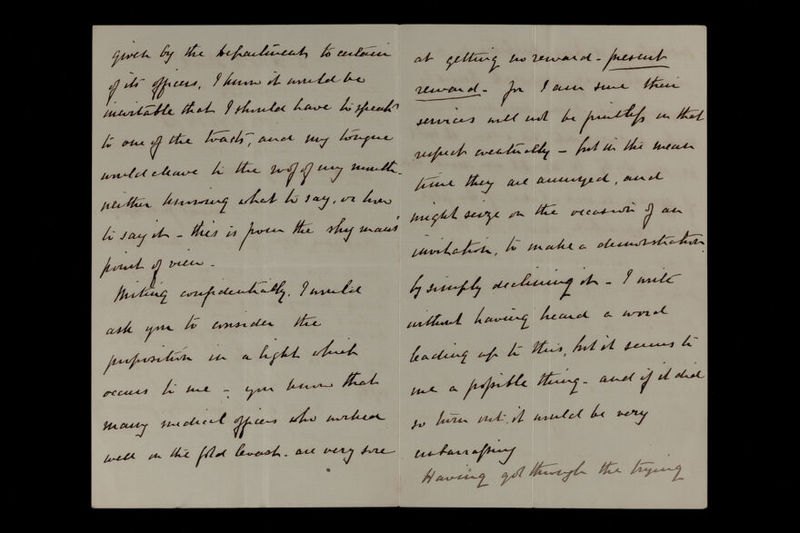 given by the Departments to certain
of its officers, I know it would be
inevitable that I should have to speak
to one of the toasts, and my tongue
would cleave to the roof of my mouth,
neither knowing what to say, or how
to say it - this is from the shy man's
point of view -
Writing confidentially, I would
ask you to consider the
proposition in a light which
occurs to me - you know that
many medical officers who worked
well on the Gold Coast - are very sore
at getting no reward - present
reward - for I am sure their
services will not be fruitless in that
respect eventually - but in the mean
time they are annoyed, and
might seize on the occasion of an
invitation, to make a demonstration
by simply declining it - I write
without having heard a word
leading up to this, but it seems to
me a possible thing - and if it did
so turn out, it would be very
embarrassing
Having got through the trying